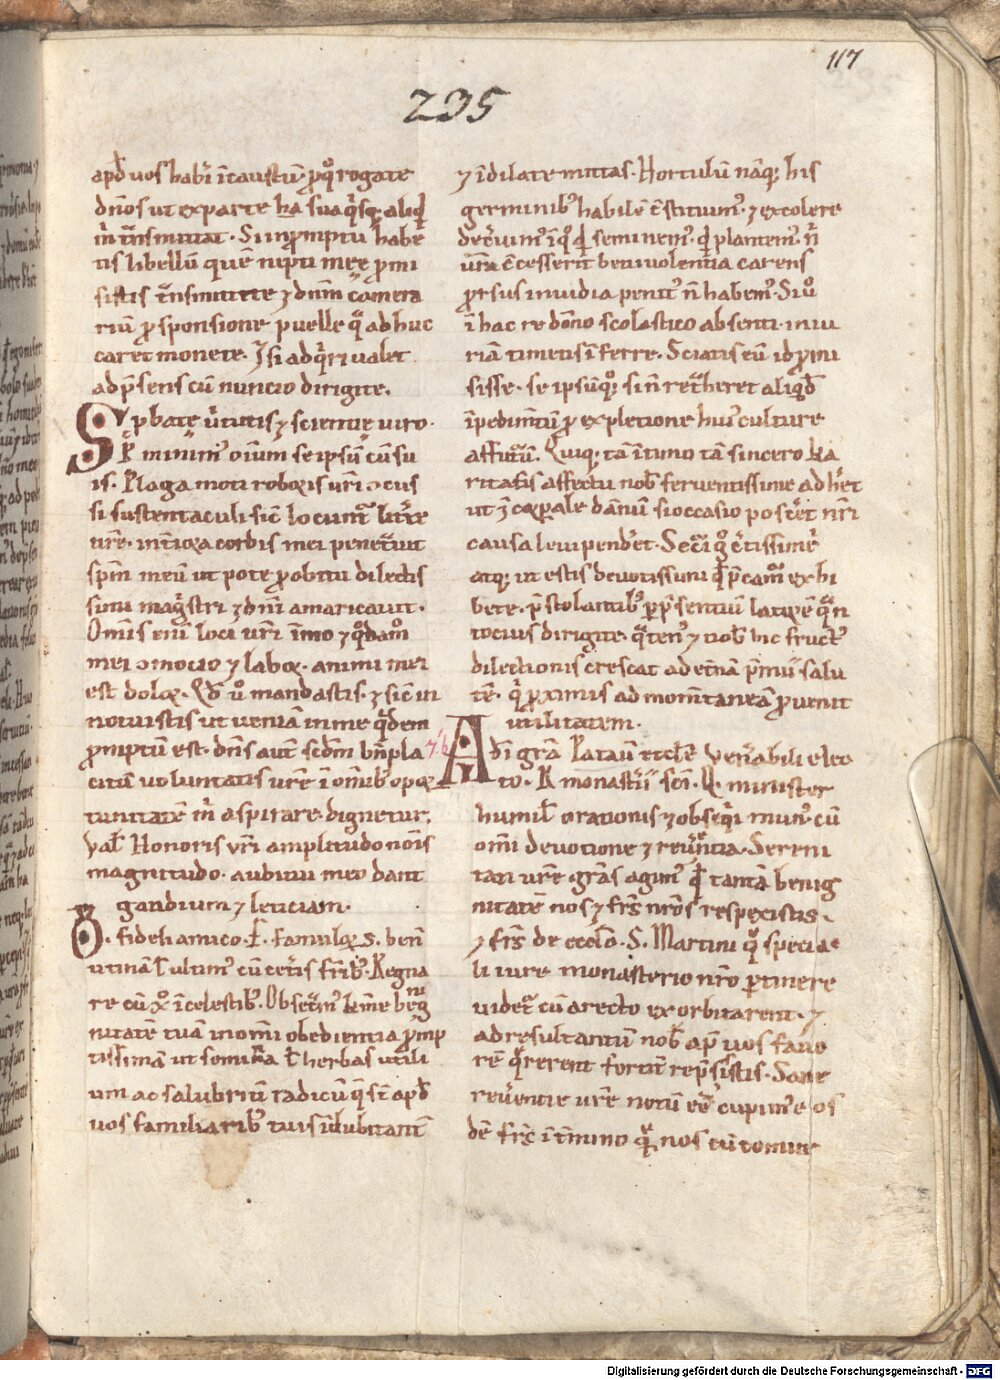 117
235
apđ uos habr̄i ī caustū. ꝓ qͦ rogate
dn̄os ut ex parte ħa sua qͥsq; aliqđ
m̄ tͣnsmittat. Si in promptu habe
tis libellū quē nepti meę ꝓmi
sistis tͣnsmittite ⁊ dnm̄ camera
riū ꝓ sponsione puelle qͣ adhuc
caret monete. Isi adqͥri ualet
ad p̄sens cū nuncio dirigite.
S p bate ūtutis ⁊ scientie uiro.
P minim᷒ oīum se ipsū cū su
is. Plaga moti roboris ur̄i ↄcus
si sustentaculi sic̄ locunt᷒ littͤre
ur̄e. intͥora cordis mei penetͣuit
sp̄m meū ut pote ꝓ obitu dilectis
simi magͥstri ⁊ dn̄i amaricauit.
Om̄is eni loci ur̄i īmo ⁊ qͦdam̄o
mei ↄmotio ⁊ labor. animi mei
est dolor. Qđ ů mandastis. ⁊ sic in
notuistis ut ueniā in me qͥdem
promptū est. dn̄s aut̄ scdm̄ bn̄pla
citū uoluntatis ur̄e in om̄ib᷒ opor
tunitatē m̄ aspirare dignetur.
Val̄ Honoris ur̄i amplitudo nōis
magnitudo. auditui meo dant
gaudium ⁊ leticiam.
O. fideli amico. F. famulor̄ S. beni
utinā ł ultim᷒ cū cet̄is frīb᷒. Regna
re cū xͦ ī celestib᷒. Obsecͣm᷒ kͥme benig
nitatē tuā in om̄i obedientia ꝓmp
tissimā ut semina ł herbas utili
um ac salubriū radicū q̄ st̄ apđ
uos familiarib᷒ tuis īdubitant̄
⁊ īdilate mittas. Hortulū nāq; his
germinib᷒ habilē ↄstituim᷒. ⁊ excolere
decͥuim᷒ ī qͦ qđ seminem᷒. qđ plantem᷒. n̄
ur̄a ↄcesserit beniuolentia carens
ꝓrsus inuidia penit᷒ n̄ habem᷒. Si ů
ī hac re dōno scolastico absenti. iniu
riā timetis īferre. Sciatis eū id ꝓmi
sisse. se ipsūqͦ; si n̄ retͣheret aliqđ
īpedimtū ꝓ expletione hui᷒ culture
affutur̄. Quiq; tā ītimo tā sincero ka
ritatis affectu nob̄ feruentissime adher̄et
ut ⁊ corꝑale dānū si occasio poscͤt nr̄i
causa leui pendͤet. Sec̄i gͦ cͤtissime
atq; ut estis deuotissimi qđ p̄cam᷒ exhi
bete. p̄stolantib᷒ ꝑ p̄sentiū latorē qͣn
tocius dirigite. qͣten᷒ ⁊ nob̄ hic fruct᷒
dilectionis crescat ad etn̄ā p̄mū salu
tē. qͥ ꝓximis ad momtaneā ꝓuenit
utilitatem.
A dī grā Pataū ecclē Venͤabili elec
to. R monastīi scī. Q minister
humil̄ orationis ⁊ obseqͥi mun᷒. cū
om̄i deuotione ⁊ reuͤntia. Sereni
tati ur̄e grās agim᷒ qđ tantā benig
nitatē nos ⁊ frs̄ nr̄os respexistis.
⁊ frs̄ de eccł̄o. S. Martini qͥ specia
li iure monasterio nr̄o ꝑtinere
uident᷒ cū a recto exorbitarent. ⁊
ad resultantū nob̄ ap̄ uos fauo
rē qͥrerent fortit̄ rep̄ssistis. Sane
reuͤentie ur̄e notū eē cupim᷒ eos
dē frs̄ ītm̄ino qͣ nos cū domin